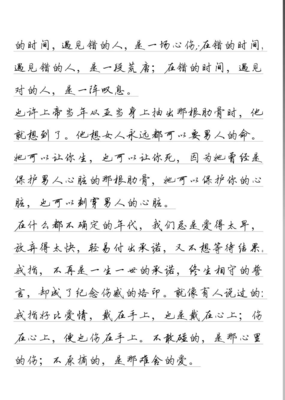 的时间，遇见错的人，是一场心伤；在错的时间，
遇见错的人，是一段荒唐；在错的时间，遇见
对的人，是一阵叹息。
也许上帝当年从亚当身上抽出那根肋骨时，他
就想到了。他想女人永远都可以要男人的命。
她可以让你生，也可以让你死，因为她曾经是
保护男人心脏的那根肋骨，她可以保护你的心
脏，也可以刺穿男人的心脏。
在什么都不确定的年代，我们总是爱得太早，
放弃得太快，轻易付出承诺，又不想等待结果。
戒指，不再是一生一世的承诺，终生相守的誓
言，却成了纪念伤感的烙印。就像有人说过的：
戒指好比爱情，戴在手上，也是戴在心上；伤
在心上，便也伤在手上。不敢碰的，是那心里
的伤；不愿摘的，是那难舍的爱。